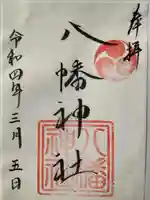 奉拝
八幡神社
令和四年三月五日
八幡
神社